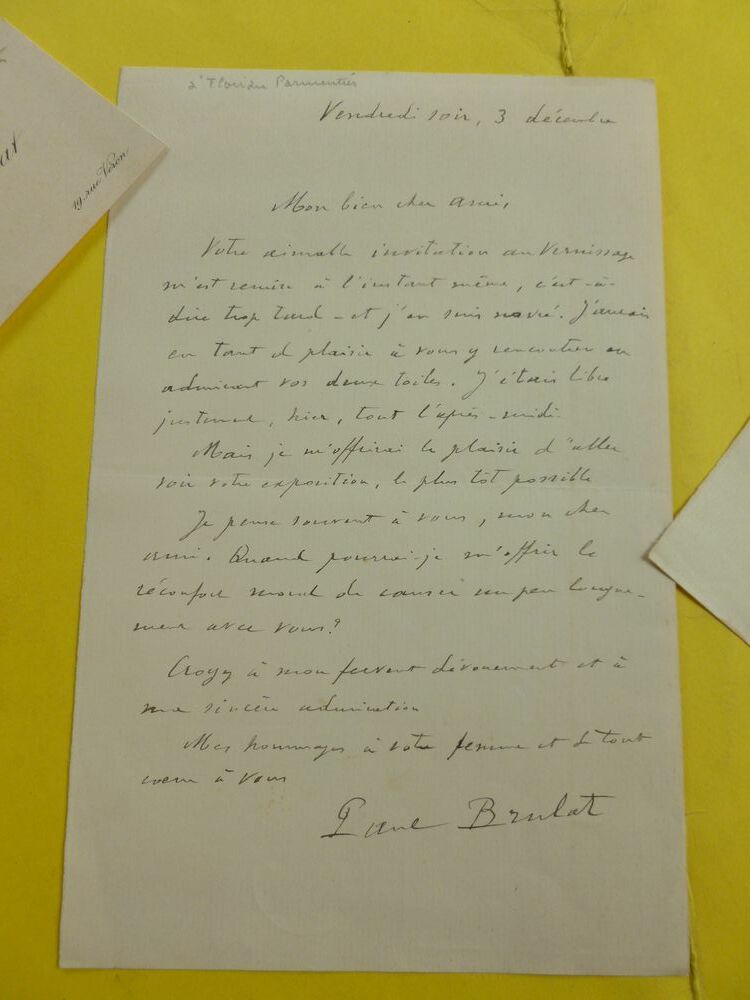 à Florian Parmentier
Vendredi soir, 3 décembre
Mon bien cher ami,
Votre aimable invitation au Vernissage
m'est remise à l'instant même, c'est-à-
dire trop tard - et j'en suis navré. J'aurais
eu tant de plaisir à vous y rencontrer en
admirant vos deux toiles. J'étais libre
justement, hier, tout l'après-midi.
Mais je m'offrirai le plaisir d'aller
voir votre exposition, le plus tôt possible
Je pense souvent à vous, mon cher
ami. Quand pourrai-je m'offrir le
réconfort moral de causer un peu longue-
ment avec vous?
Croyez à mon fervent dévouement et à
ma sincère admiration
Mes hommages à votre femme et de tout
coeur à vous
Paul Brulat
at
19, rue Véron